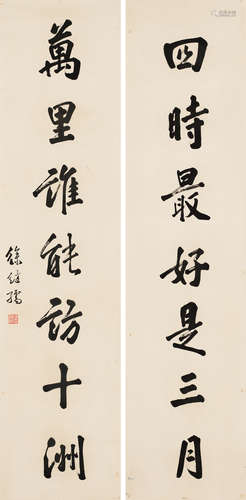 四時最好是三月
萬里誰能訪十洲
徐継孺